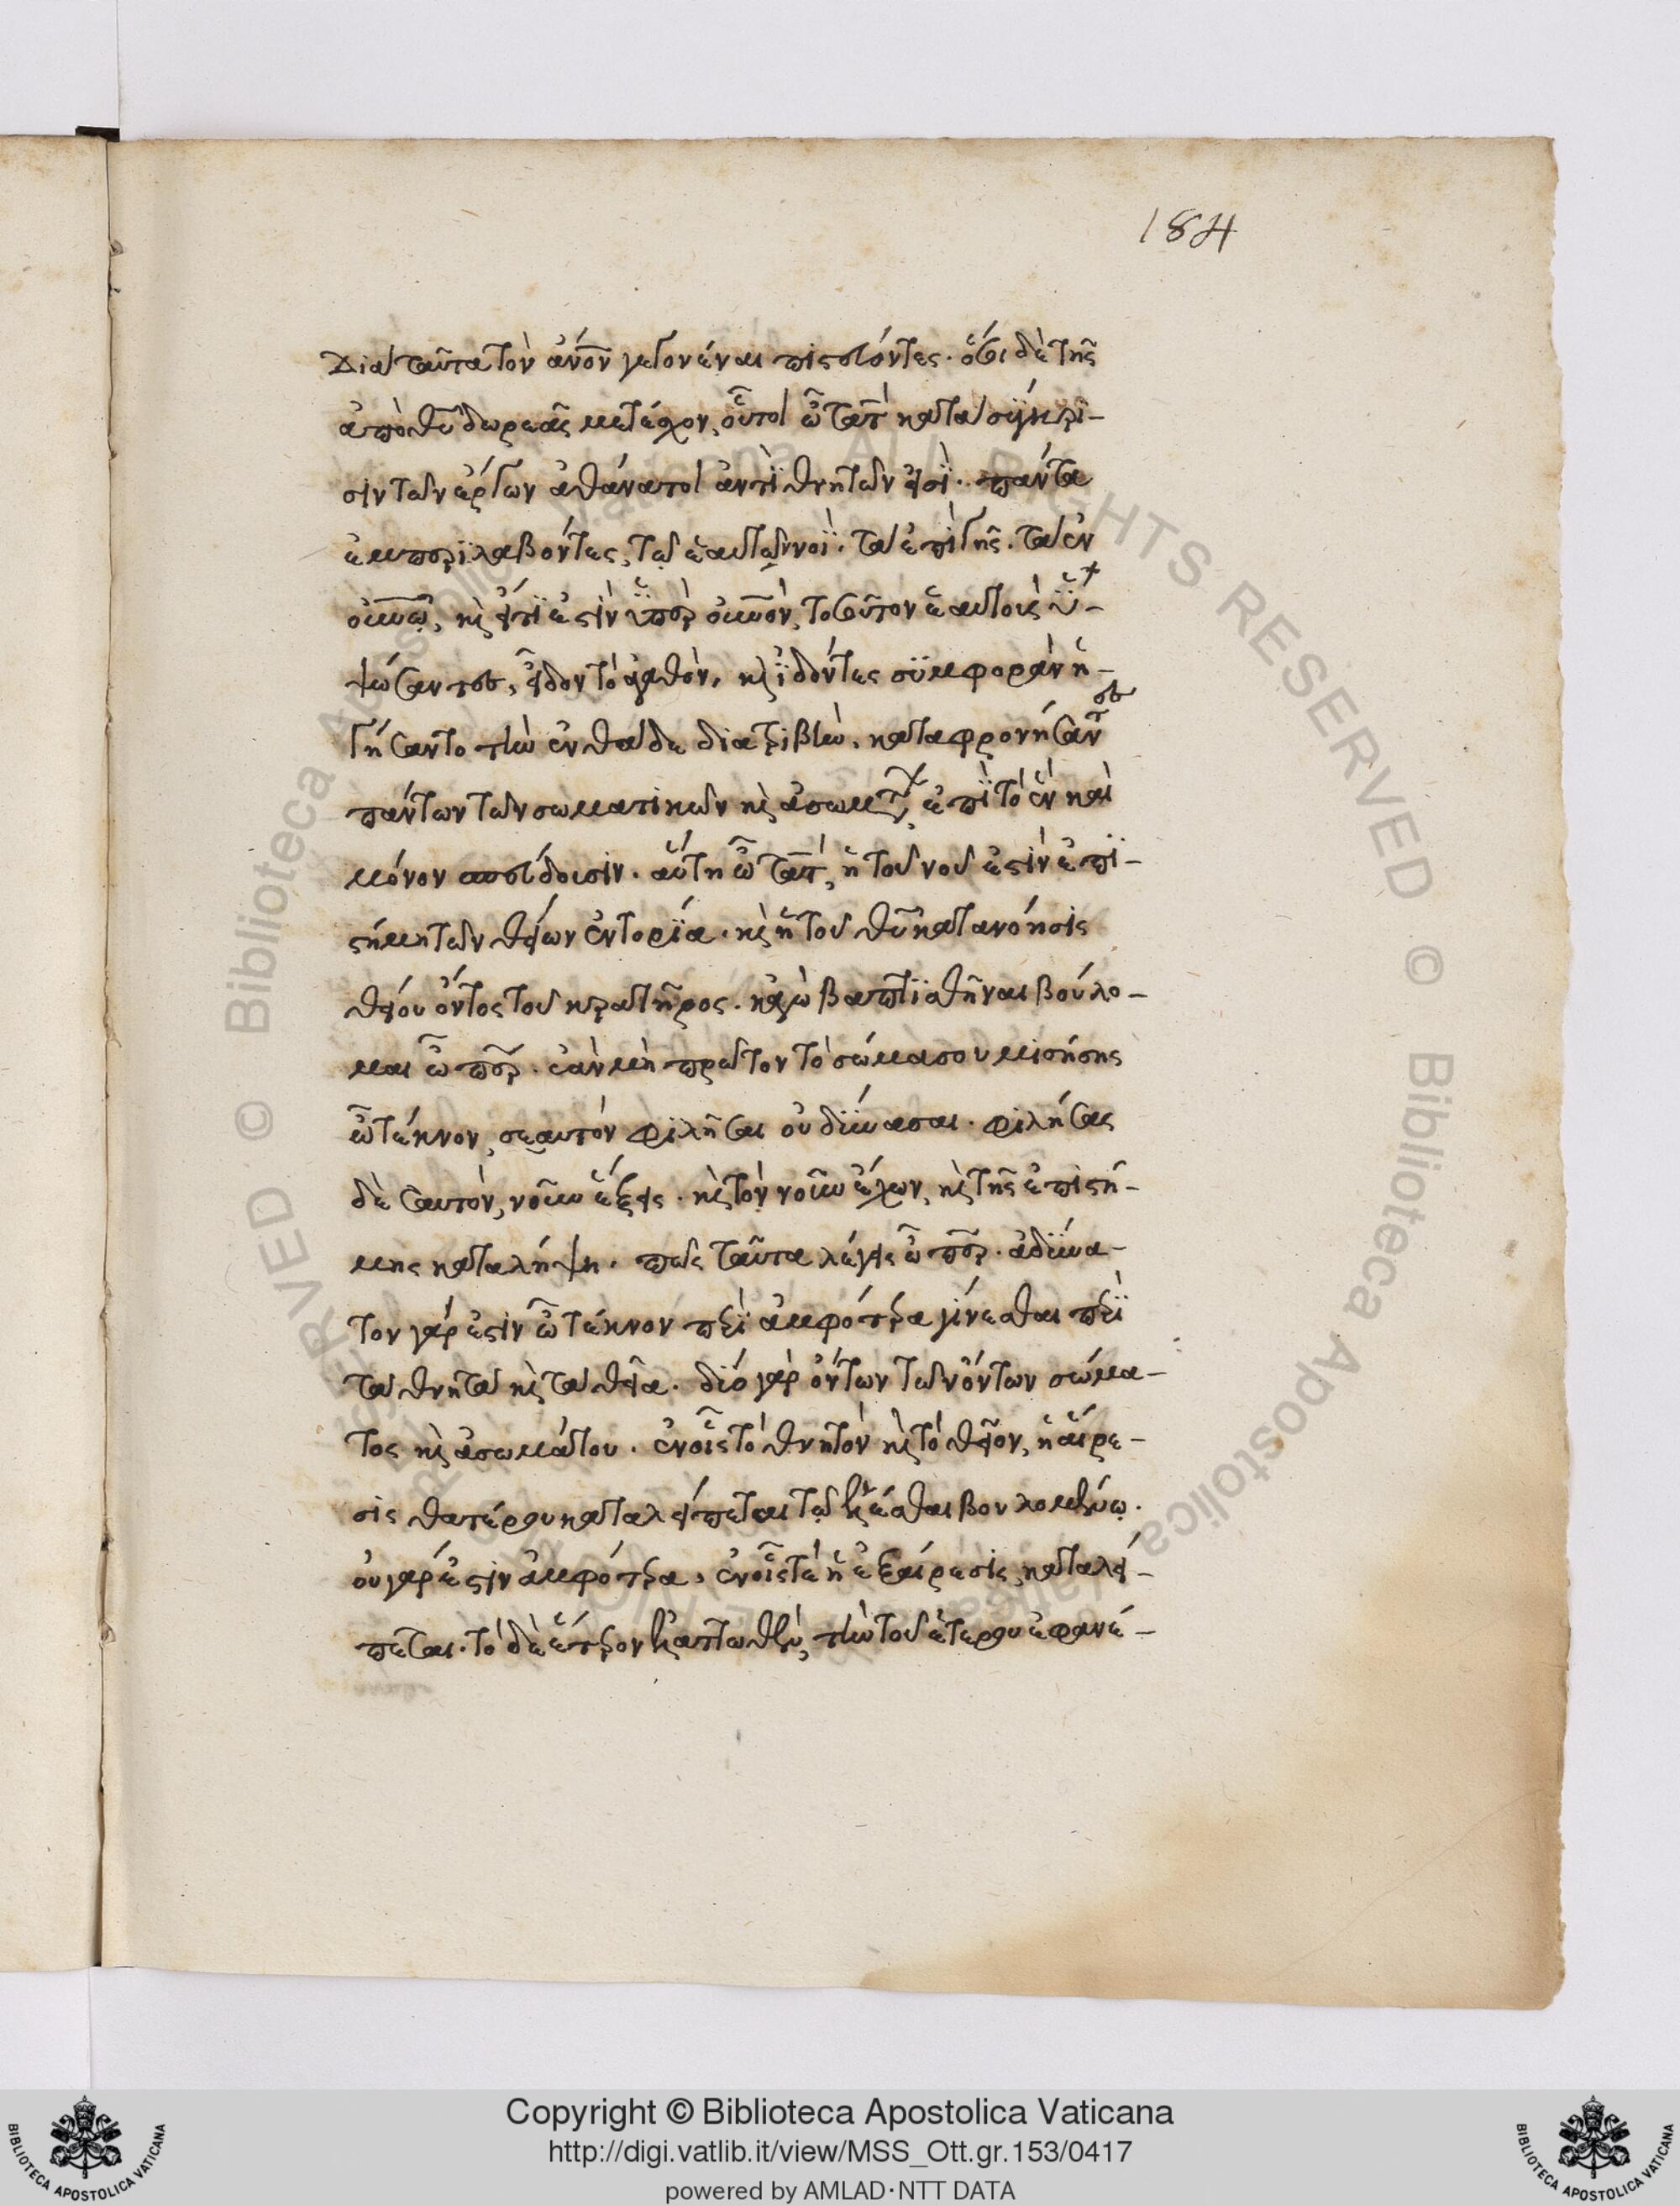 184
Διὰ ταῦτα τὸν ἄνον γεγονέναι πιστεύοντες. ὅσοι δὲ τῆς
ἀπὸ θυ δωρεᾶς μετέχον, οὗτοι ὦ τὰτ κατὰ σύγκρι-
σιν τῶν ἔργων ἀθάνατοι ἀντὶ θνητῶν εἰσὶ. πάντα
ἐμπεριλαβόντες, τῷ ἑαυτῶν νοῒ. τὰ ἐπὶ γῆς. τὰ ἐν
οὐνῷ, κ εἴ τι ἐστὶν ὑπὲρ οὐνόν, τοσοῦτον ἑαυτοὺς ὑ-
ψώσαντες, εἶδον τὸ ἀγαθόν, κ ἰδόντες συμφορὰν ἡ-
γήσαντο τὴν ἐνθάδε διατριβὴν, καταφρονήσαντες
πάντων τῶν σωματικῶν κ ἀσωμάτων, ἐπὶ τὸ ἓν καὶ
μόνον σπεύδουσιν. αὕτη ὦ τὰτ, ἡ τοῦ νοῦ ἐστὶν ἐπι-
στήμη τῶν θείων ἐντορία. κ ἡ τοῦ θυ κατανόησις
θείου ὄντος τοῦ κρατῆρος. κἀγὼ βαπτισθῆναι βούλο-
μαι ὦ περ. ἐὰν μὴ πρῶτον τὸ σῶμα σου μισήσης
ὦ τέκνον, σεαυτὸν φιλῆσαι οὐ δύνασαι. φιλήσας
δὲ σαυτόν, νοῦν ἕξεις. κ τὸν νοῦν ἔχων, κ τῆς ἐπιστή-
μης καταλήψη. πῶς ταῦτα λέγεις ὦ περ. ἀδύνα-
τον γάρ ἐστιν ὦ τέκνον περὶ ἀμφότερα γίνεσθαι περὶ
τὰ θνητὰ κ τὰ θεῖα. δύο γὰρ ὄντων τῶν ὄντων σώμα-
τος κ ἀσωμάτου. ἐν οἷς τὸ θνητὸν κ τὸ θεῖον, ἡ αἵρε-
σις θατέρου καταλείπεται τῷ ἑλέσθαι βουλομένῳ.
οὐ γάρ ἐστιν ἀμφότερα, ἐν οἷς τὲ ἡ ἐξαίρεσις καταλεί-
πεται. τὸ δὲ ἕτερον ἐλαττωθὲν, τὴν τοῦ ἑτέρου ἐφανέ-
Copyright © Biblioteca Apostolica Vaticana
http://digi.vatlib.it/view/MSS_Ott.gr.153/0417
powered by AMLAD·NTT DATA
BIBLIOTECA APOSTOLICA VATICANA
BIBLIOTECA APOSTOLICA VATICANA